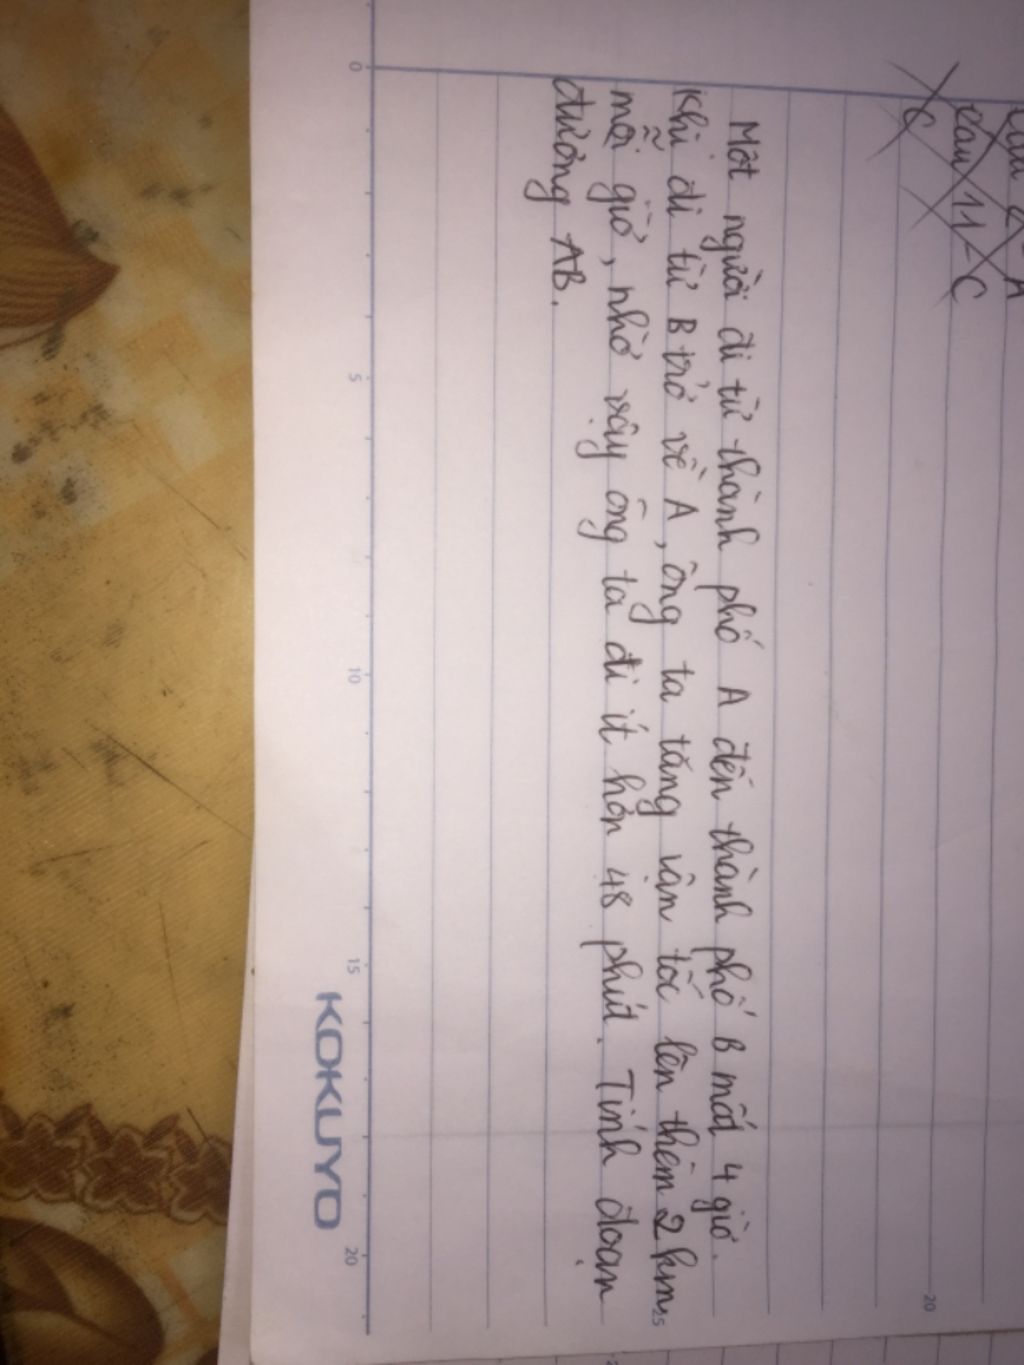 Câu 2 - A
Câu 11 - C
C
Một người đi từ thành phố A đến thành phố B mất 4 giờ.
Khi đi từ B trở về A, ông ta tăng vận tốc lên thêm 2 km
mỗi giờ, nhờ vậy ông ta đi ít hơn 48 phút. Tính đoạn
đường AB.
0 5 10 15 20
20
25
KOKUYO